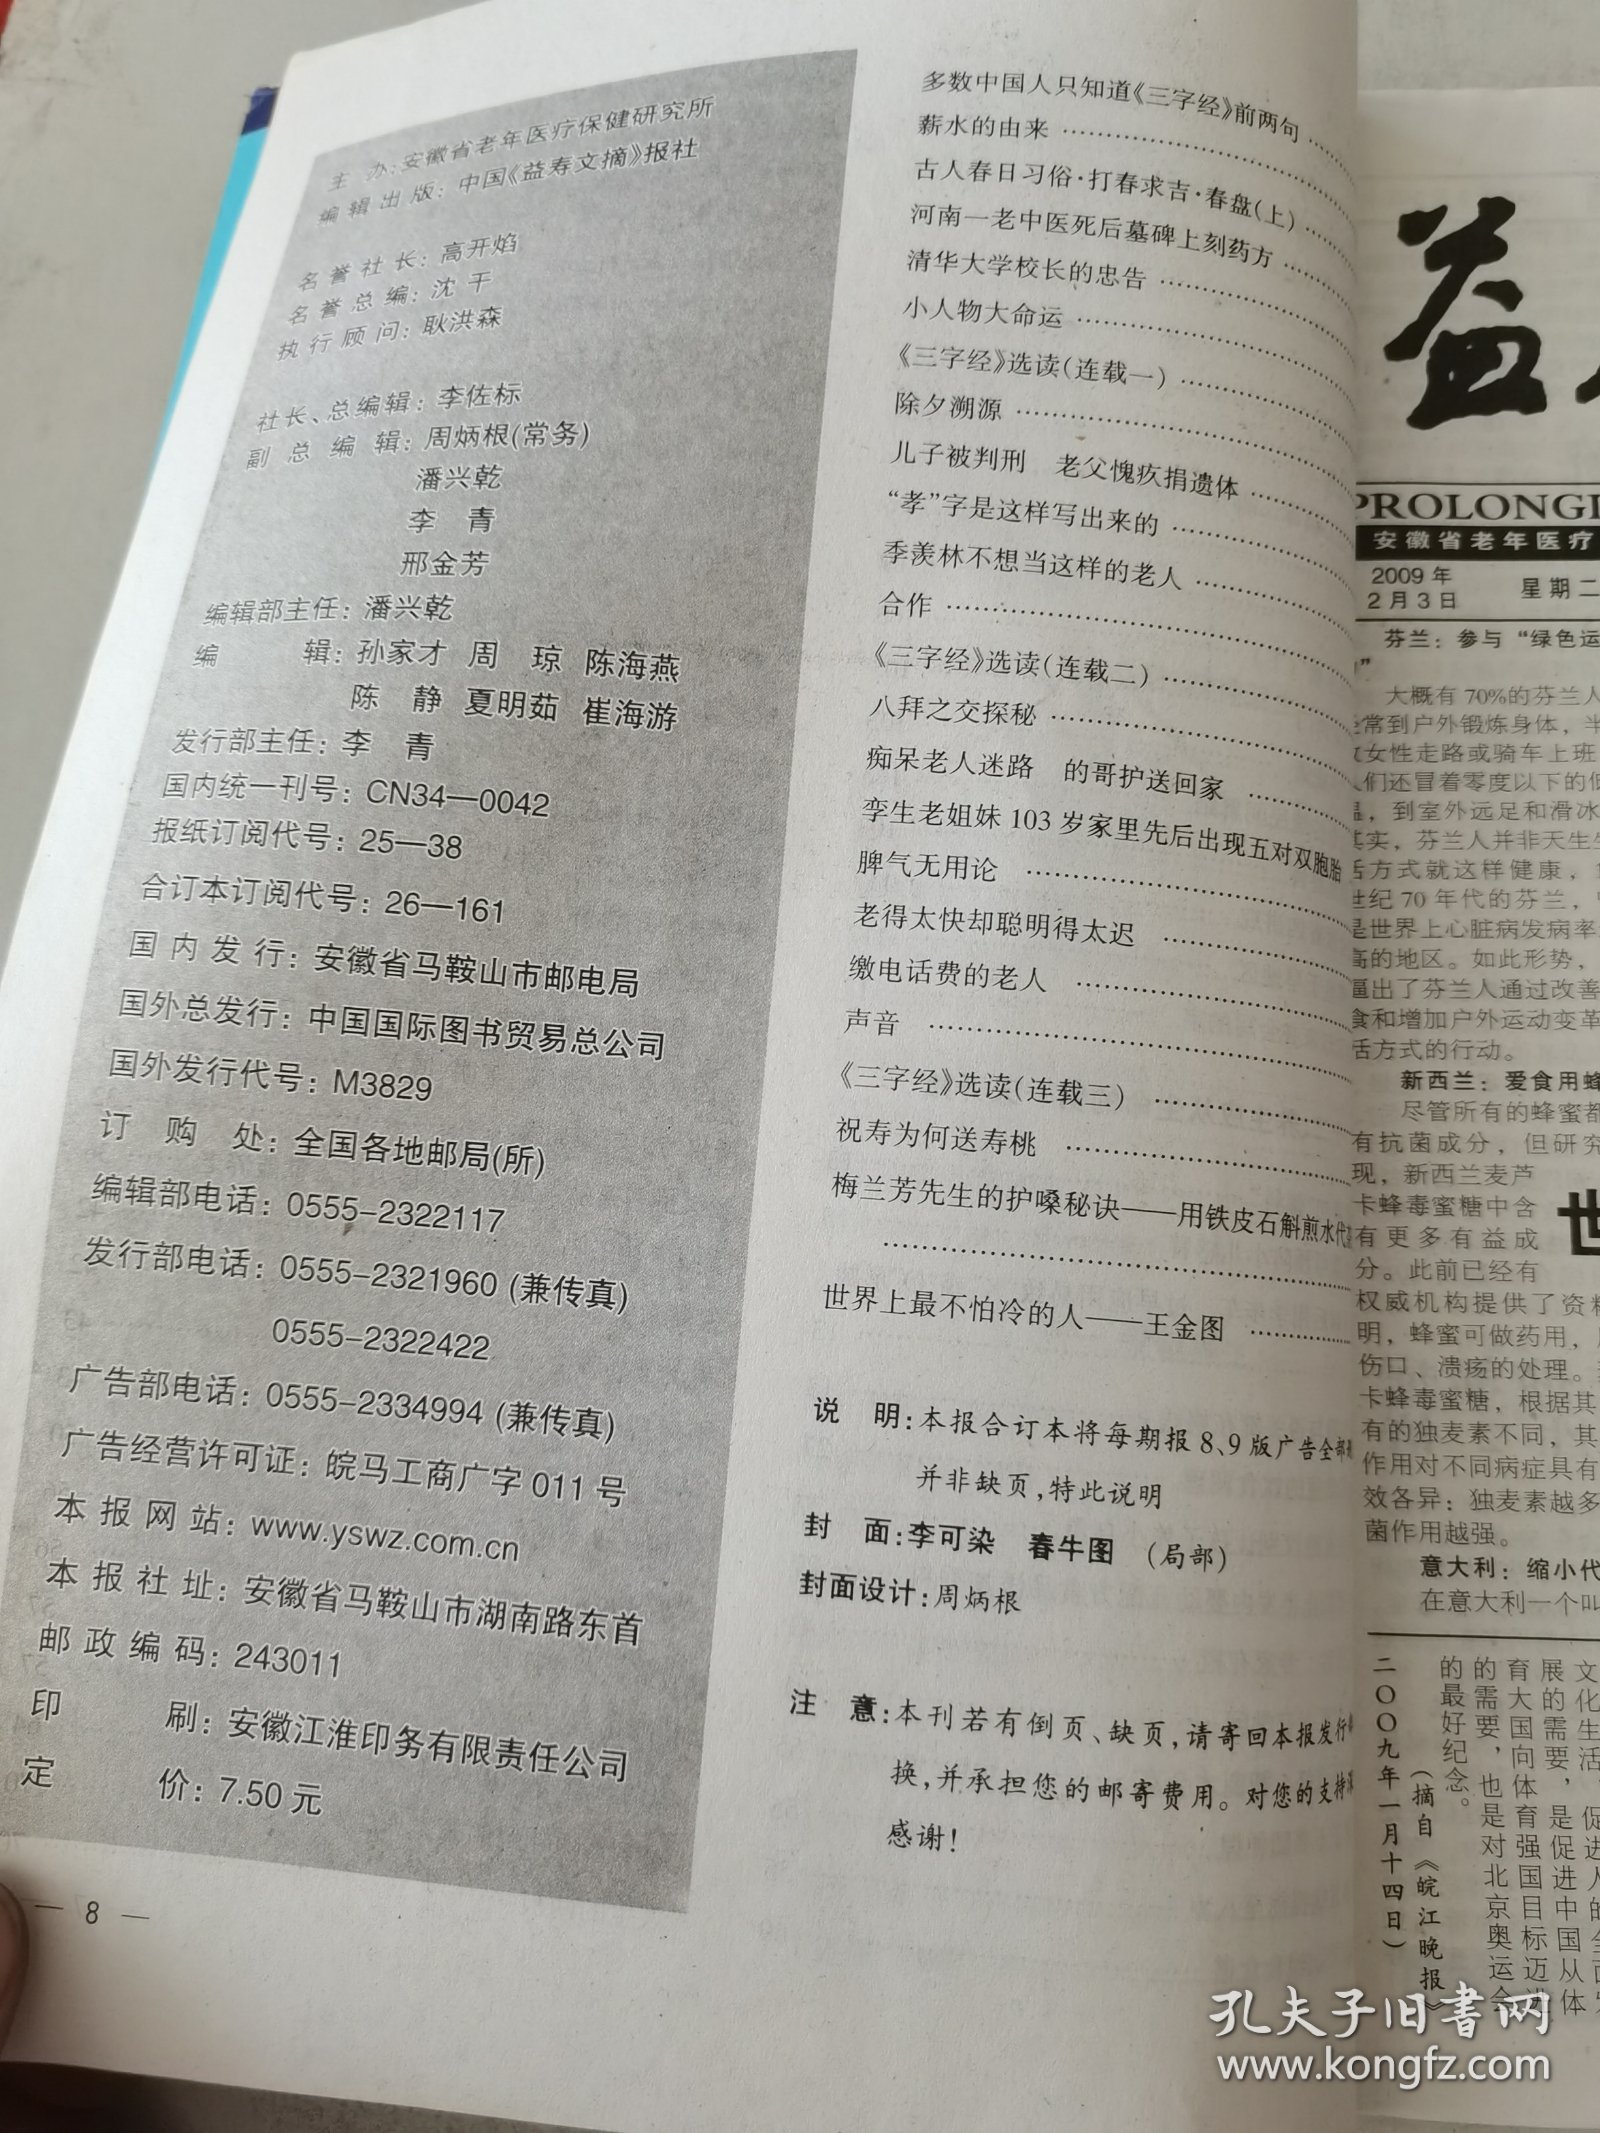 主 办：安徽省老年医疗保健研究所
编 辑 出 版：中国《益寿文摘》报社
名 誉 社 长：高开焰
名 誉 总 编：沈 干
执 行 顾 问：耿洪森
社长、总编辑：李佐标
副 总 编 辑：周炳根(常务)
潘兴乾
李 青
邢金芳
编辑部主任：潘兴乾
编 辑：孙家才 周 琼 陈海燕
陈 静 夏明茹 崔海游
发行部主任：李 青
国内统一刊号：CN34—0042
报纸订阅代号：25—38
合订本订阅代号：26—161
国 内 发 行：安徽省马鞍山市邮电局
国外总发行：中国国际图书贸易总公司
国外发行代号：M3829
订 购 处：全国各地邮局(所)
编辑部电话：0555-2322117
发行部电话：0555-2321960 (兼传真)
0555-2322422
广告部电话：0555-2334994 (兼传真)
广告经营许可证：皖马工商广字 011 号
本 报 网 站：www.yswz.com.cn
本 报 社 址：安徽省马鞍山市湖南路东首
邮 政 编 码：243011
印 刷：安徽江淮印务有限责任公司
定 价：7.50 元
— 8 —
多数中国人只知道《三字经》前两句
薪水的由来
古人春日习俗·打春求吉·春盘(上)
河南一老中医死后墓碑上刻药方
清华大学校长的忠告
小人物大命运
《三字经》选读(连载一)
除夕溯源
儿子被判刑 老父愧疚捐遗体
“孝”字是这样写出来的
季羡林不想当这样的老人
合作
《三字经》选读(连载二)
八拜之交探秘
痴呆老人迷路 的哥护送回家
孪生老姐妹 103 岁家里先后出现五对双胞胎
脾气无用论
老得太快却聪明得太迟
缴电话费的老人
声音
《三字经》选读(连载三)
祝寿为何送寿桃
梅兰芳先生的护嗓秘诀——用铁皮石斛煎水代
世界上最不怕冷的人——王金图
说 明：本报合订本将每期报 8、9 版广告全部
并非缺页，特此说明
封 面：李可染 春牛图 (局部)
封面设计：周炳根
注 意：本刊若有倒页、缺页，请寄回本报发行
换，并承担您的邮寄费用。对您的支持
感谢！
益
PROLONGI
安徽省老年医疗
2009 年
2 月 3 日
星期二
芬兰：参与“绿色运
”
大概有 70%的芬兰人
常到户外锻炼身体，半
女性走路或骑车上班
们还冒着零度以下的低
温，到室外远足和滑冰
其实，芬兰人并非天生
活方式就这样健康，
世纪 70 年代的芬兰，
是世界上心脏病发病率
高的地区。如此形势，
逼出了芬兰人通过改善
食和增加户外运动变革
活方式的行动。
新西兰：爱食用蜂
尽管所有的蜂蜜都
有抗菌成分，但研究
现，新西兰麦芦
卡蜂毒蜜糖中含
有更多有益成
分。此前已经有
权威机构提供了资料
明，蜂蜜可做药用，
伤口、溃疡的处理。
卡蜂毒蜜糖，根据其
有的独麦素不同，其
作用对不同病症具有
效各异：独麦素越多
菌作用越强。
世
意大利：缩小代
在意大利一个叫
文化生活，促进人的全面
展的需要，是促进中国从体
育大国向体育强国目标迈进
的需要，也是对北京奥运会
的最好纪念。
(摘自《皖江晚报》
二○○九年一月十四日)
孔夫子旧书网
www.kongfz.com